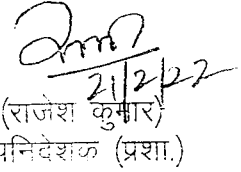 21/2/22
(राजेश कुमार)
पनिदेशक (प्रशा.)